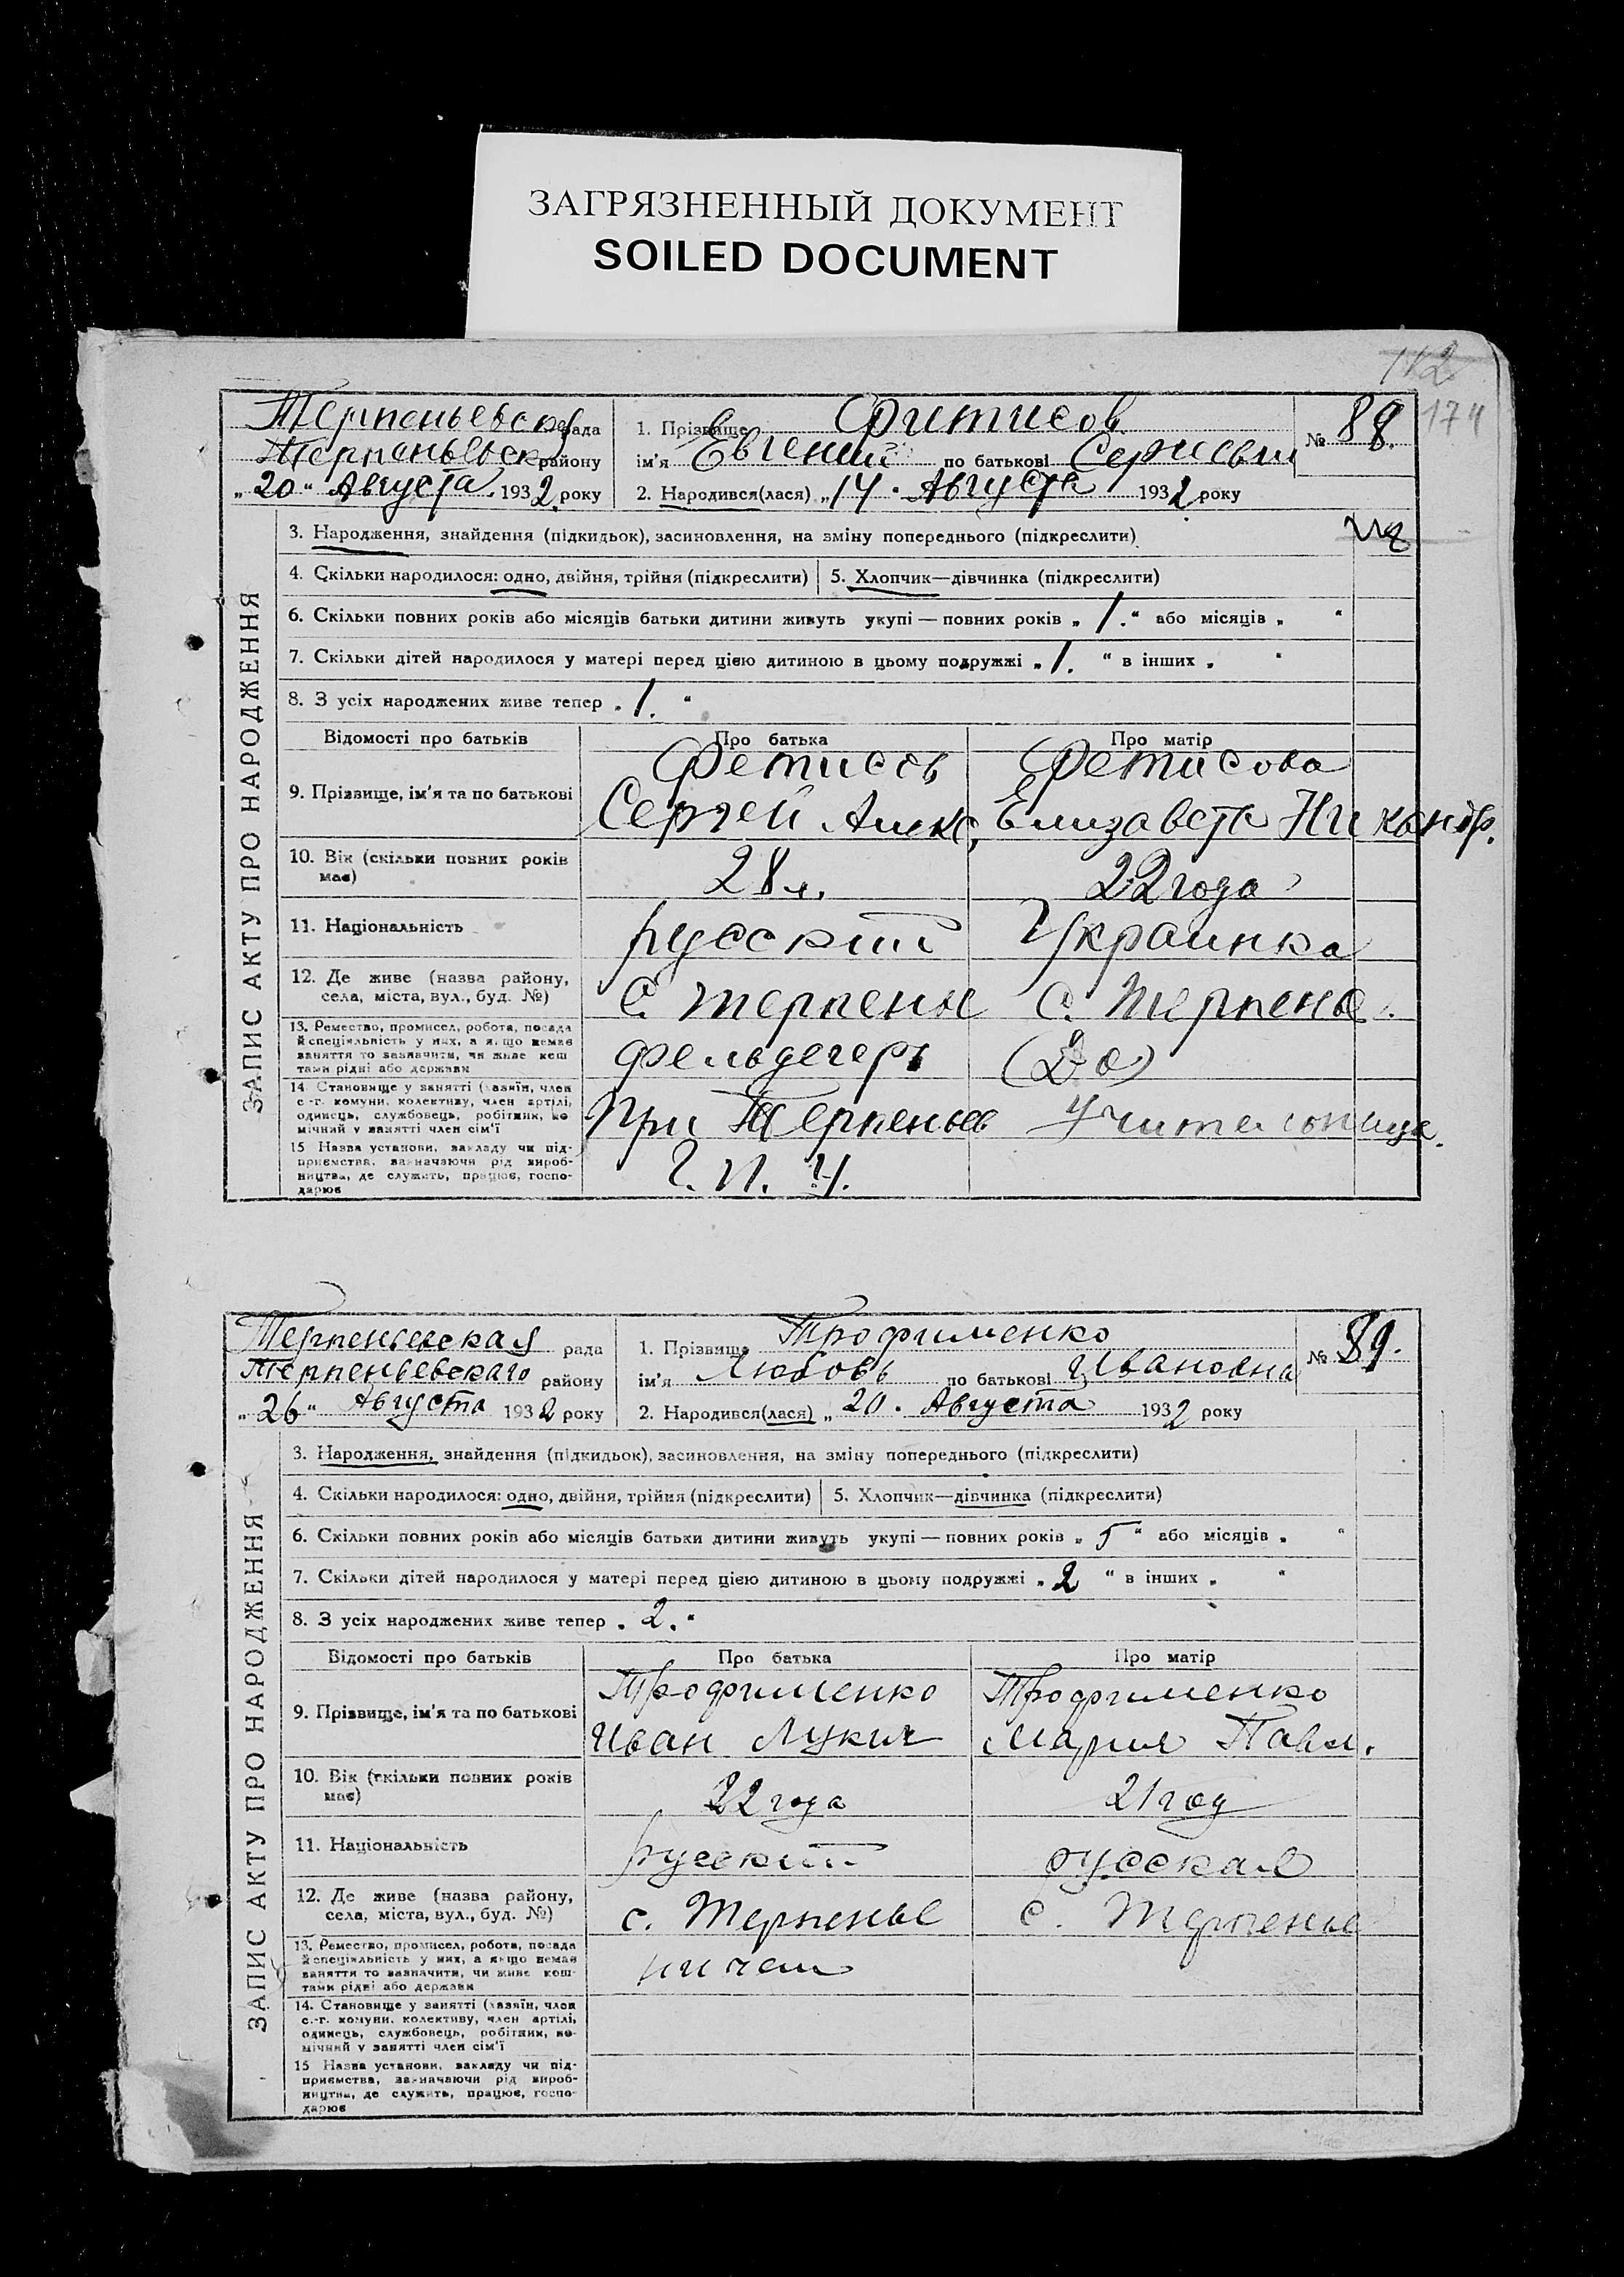 ЗАГРЯЗНЕННЫЙ ДОКУМЕНТ
SOILED DOCUMENT
112
174
Терпеньевск рада
Терпеньевск району
„20“ Августа 1932 року
1. Прізвище Фитисов
ім'я Евгений по батькові Сергиевич
№ 88.
2. Народився(лася) „14. Августа 1932 року
3. Народження, знайдення (підкидьок), засиновлення, на зміну попереднього (підкреслити)
4. Скільки народилося: одно, двійня, трійня (підкреслити) 5. Хлопчик—дівчинка (підкреслити)
6. Скільки повних років або місяців батьки дитини живуть укупі — повних років „1.“ або місяців „ “
7. Скільки дітей народилося у матері перед цією дитиною в цьому подружжі „1. “ в інших „ “
8. З усіх народжених живе тепер „1. “
ЗАПИС АКТУ ПРО НАРОДЖЕННЯ
Відомості про батьків Про батька Про матір
9. Прізвище, ім'я та по батькові Фетисов Сергей Алекс. Фетисова Елизавета Никанор.
10. Вік (скільки повних років має) 28 л. 22 года
11. Національність русский Украинка
12. Де живе (назва району, села, міста, вул., буд. №) С. Терпенье С. Терпенье.
13. Ремество, промисел, робота, посада й спеціяльність у них, а якщо немає заняття то зазначити, чи живе кош тами рідні або держави фельдегерь (До)
14 Становище у занятті (хазяїн, член с.-г. комуни, колективу, член артілі, одинець, службовець, робітник, помічний у занятті член сім'ї При Терпеньев Учительница.
15 Назва установи, закладу чи підприємства, зазначаючи рід виробництва, де служить, працює, господарює Г. П. У.
Терпеньевская рада
Терпеньевскаго району
„26“ Августа 1932 року
1. Прізвище Трофименко
ім'я Любовь по батькові Ивановна
№ 89.
2. Народився(лася) „20. Августа 1932 року
3. Народження, знайдення (підкидьок), засиновлення, на зміну попереднього (підкреслити)
4. Скільки народилося: одно, двійня, трійня (підкреслити) 5. Хлопчик—дівчинка (підкреслити)
6. Скільки повних років або місяців батьки дитини живуть укупі — повних років „5“ або місяців „ “
7. Скільки дітей народилося у матері перед цією дитиною в цьому подружжі „2 “ в інших „ “
8. З усіх народжених живе тепер „2.“
ЗАПИС АКТУ ПРО НАРОДЖЕННЯ
Відомості про батьків Про батька Про матір
9. Прізвище, ім'я та по батькові Трофименко Иван Лукич Трофименко Мария Павл.
10. Вік (скільки повних років має) 22 года 21 год
11. Національність русский русская
12. Де живе (назва району, села, міста, вул., буд. №) с. Терпенье С. Терпенье
13. Ремество, промисел, робота, посада й спеціяльність у них, а якщо немає заняття то зазначити, чи живе коштами рідні або держави
14. Становище у занятті (хазяїн, член с.-г. комуни, колективу, член артілі, одинець, службовець, робітник, помічний у занятті член сім'ї
15 Назва установи, закладу чи підприємства, зазначаючи рід виробництва, де служить, працює, господарює